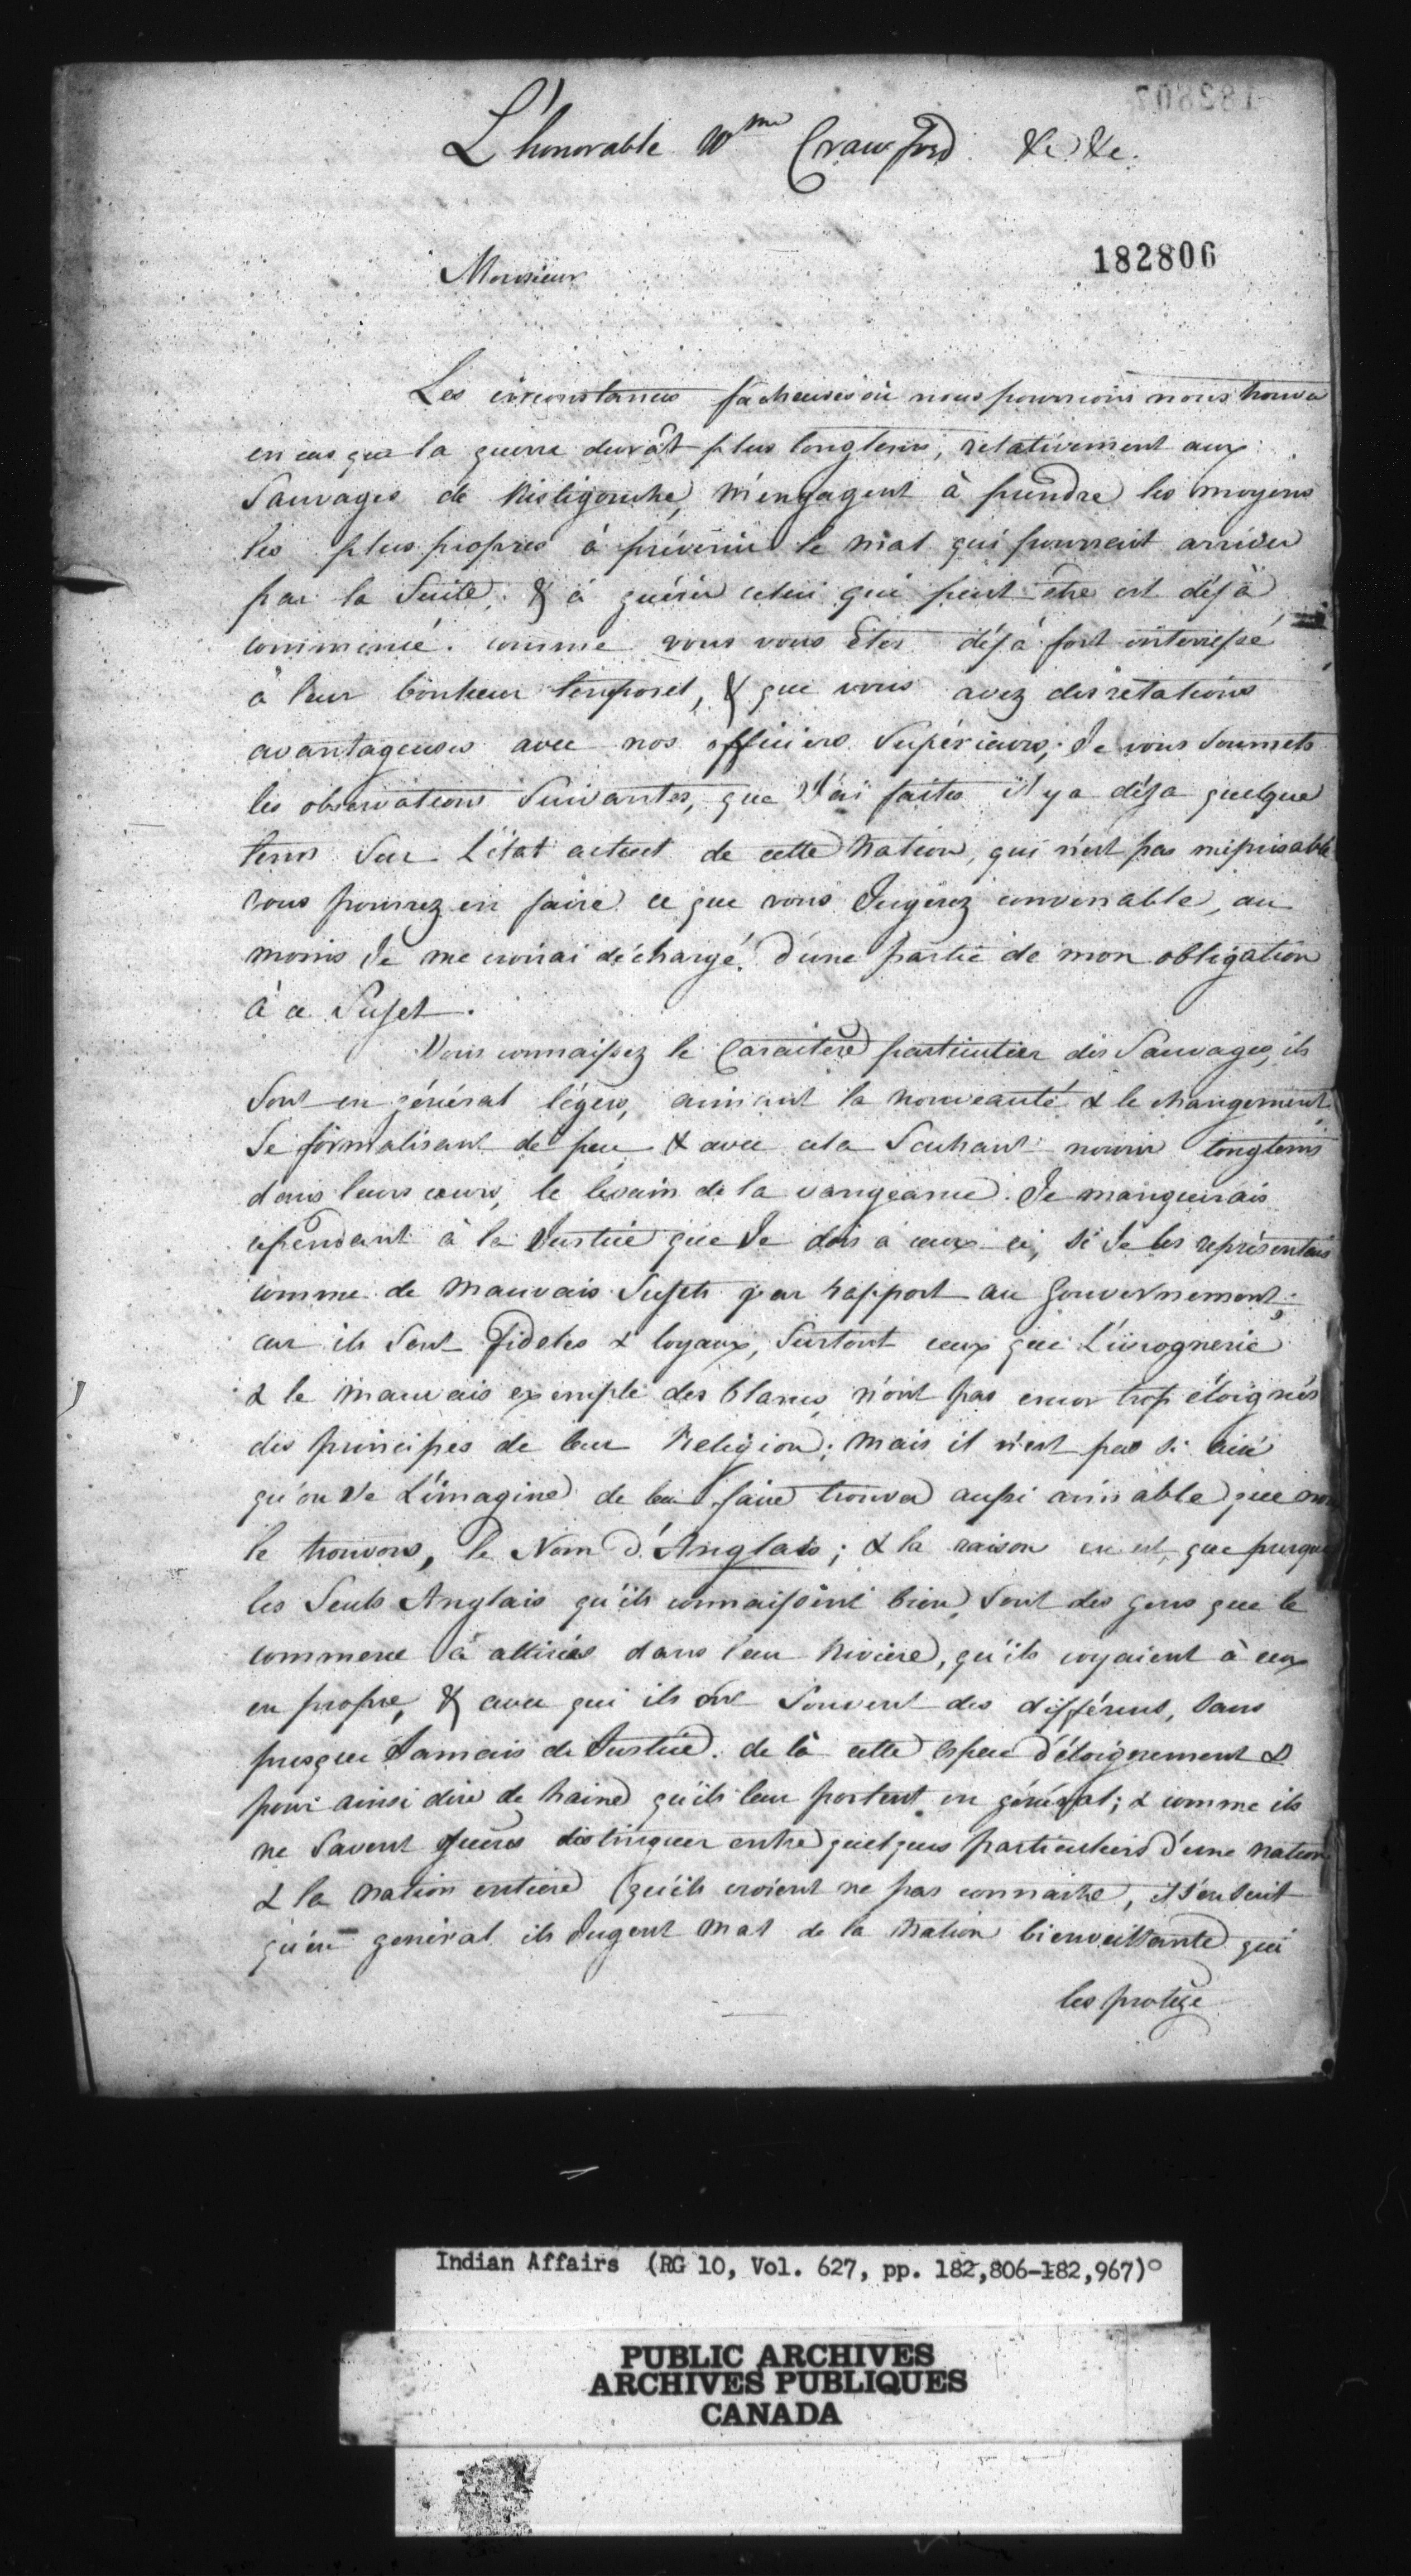 182807
L'honorable Wm Crawford &c &c.
182806
Monsieur
Les circonstances facheuses où nous pourrions nous trouver
en cas que la guerre durât plus longtems, relativement aux
Sauvages de Ristigouche, m'engagent à prendre les moyens
les plus propres à prévenir le mal qui pourrait arriver
par la Suite, & à guérir celui qui peut être est déjà
commencé. comme vous vous êtes déjà fort interressé
à leur bonheur temporel, & que vous avez des relations
avantageuses avec nos officiers Supérieurs, Je vous Soumets
les observations Suivantes, que J'ai faites il y a déja quelque
tems Sur L'état actuel de cette Nation, qui n'est pas méprisable
vous pourrez en faire ce que vous Jugerez convenable, au
moins Je me croirai déchargé d'une partie de mon obligation
à ce Sujet.
Vous connaissez le Caractère particulier des Sauvages, ils
Sont en général légers, aimant la nouveauté & le changement
Se formalisant de peu & avec cela Sachant nourrir longtems
dans leurs cœurs, le levain de la vangeance. Je manquerais
cependant à la Justice que Je dois à ceux ci, Si Je les représentais
comme de mauvais Sujets par rapport au Gouvernement;
car ils Sont fideles & loyaux, Surtout ceux que L'ivrognerie
& le mauvais exemple des blancs n'ont pas encor trop éloignés
des principes de leur Religion; mais il n'est pas Si aisé
qu'on Se L'imagine de leur faire trouver aussi aimable que nous
le trouvons, le Nom d'Anglais; & la raison en est, que presque
les Seuls Anglais qu'ils connaissent bien, Sont des gens que le
commerce à attirés dans leur Riviere, qu'ils croyaient à eux
en propre, & avec qui ils ont Souvent des différens, Sans
presque Jamais de Justice. de là cette espece d'éloignement &
pour ainsi dire de haine qu'ils leur portent en général; & comme ils
ne Savent gueres distinguer entre quelques particuliers d'une nation
& la nation entiere (qu'ils croient ne pas connaitre, il s'en Suit
qu'en general ils Jugent mal de la Nation bienveillante qui
les protège
Indian Affairs (RG 10, Vol. 627, pp. 182,806-182,967)
PUBLIC ARCHIVES
ARCHIVES PUBLIQUES
CANADA